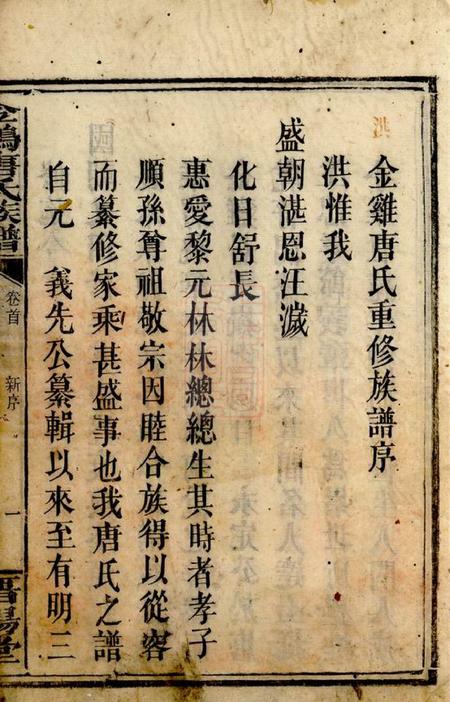 金雞唐氏重修族譜序
洪惟我
盛朝湛恩汪濊
化日舒長
惠愛黎元林林總總生其時者孝子
順孫尊祖敬宗因睦合族得以從容
而纂修家乘甚盛事也我唐氏之譜
自元 義先公纂輯以來至有明三
金鷄唐氏族譜
卷首
新序
一
晉陽堂